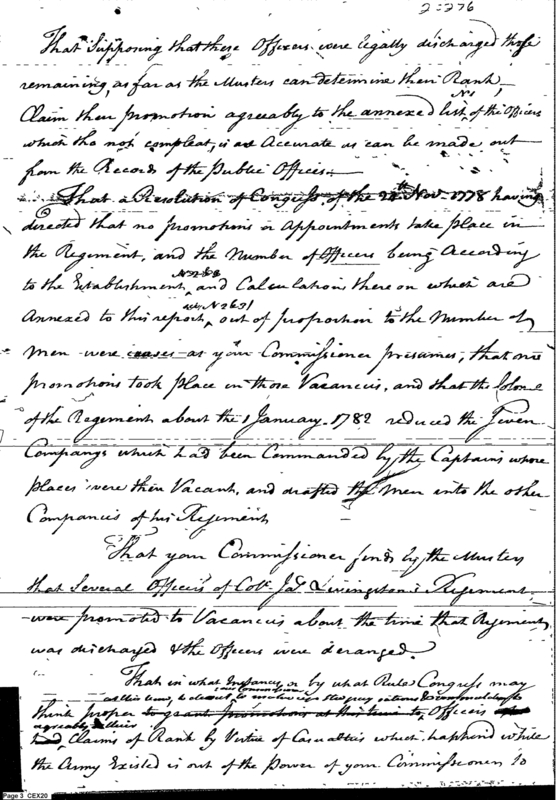 2=276
That Supposing that these Officers were legally discharged those
remaining, as far as the Musters can determine their Rank,
Claim their promotion agreeably to the annexed list of the Officers
No 1
which tho not compleat, is as Accurate as can be made out
from the Records of the Public Offices.—
That a Resolution of Congress of the 24th Nov. 1778 having
directed that no promotions or Appointments take place in
the Regiment, and the Number of Officers being According
to the Establishment, and Calculation there on which are
Annexed to this report, out of proportion to the Number of
Men were as your Commissioner presumes, that no
promotions took place in those Vacancies, and that the Colonel
of the Regiment about the 1 January 1782 reduced the
Companys which had been Commanded by the Captains whose
places were then Vacant, and drafted the Men into the other
Companies of his Regiment
That your Commissioner finds by the Musters
that Several Officers of Colo. Jas. Livingston's Regiment
were promoted to Vacancies about the time that Regiment
was discharged & the Officers were deranged.
That in what Instances or by what Rule Congress may
at this time
think proper to grant promotions at this time to Officers
agreeable
Claims of Rank by Virtue of Casualties which happend while
the Army Existed is out of the Power of your Commissioner to
Page 3 CEX20